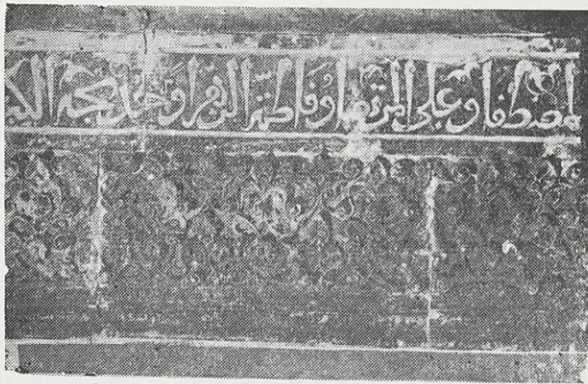 مصطفا وعلى المرتضا وفاطمة الزهرا وخديجة الكبر